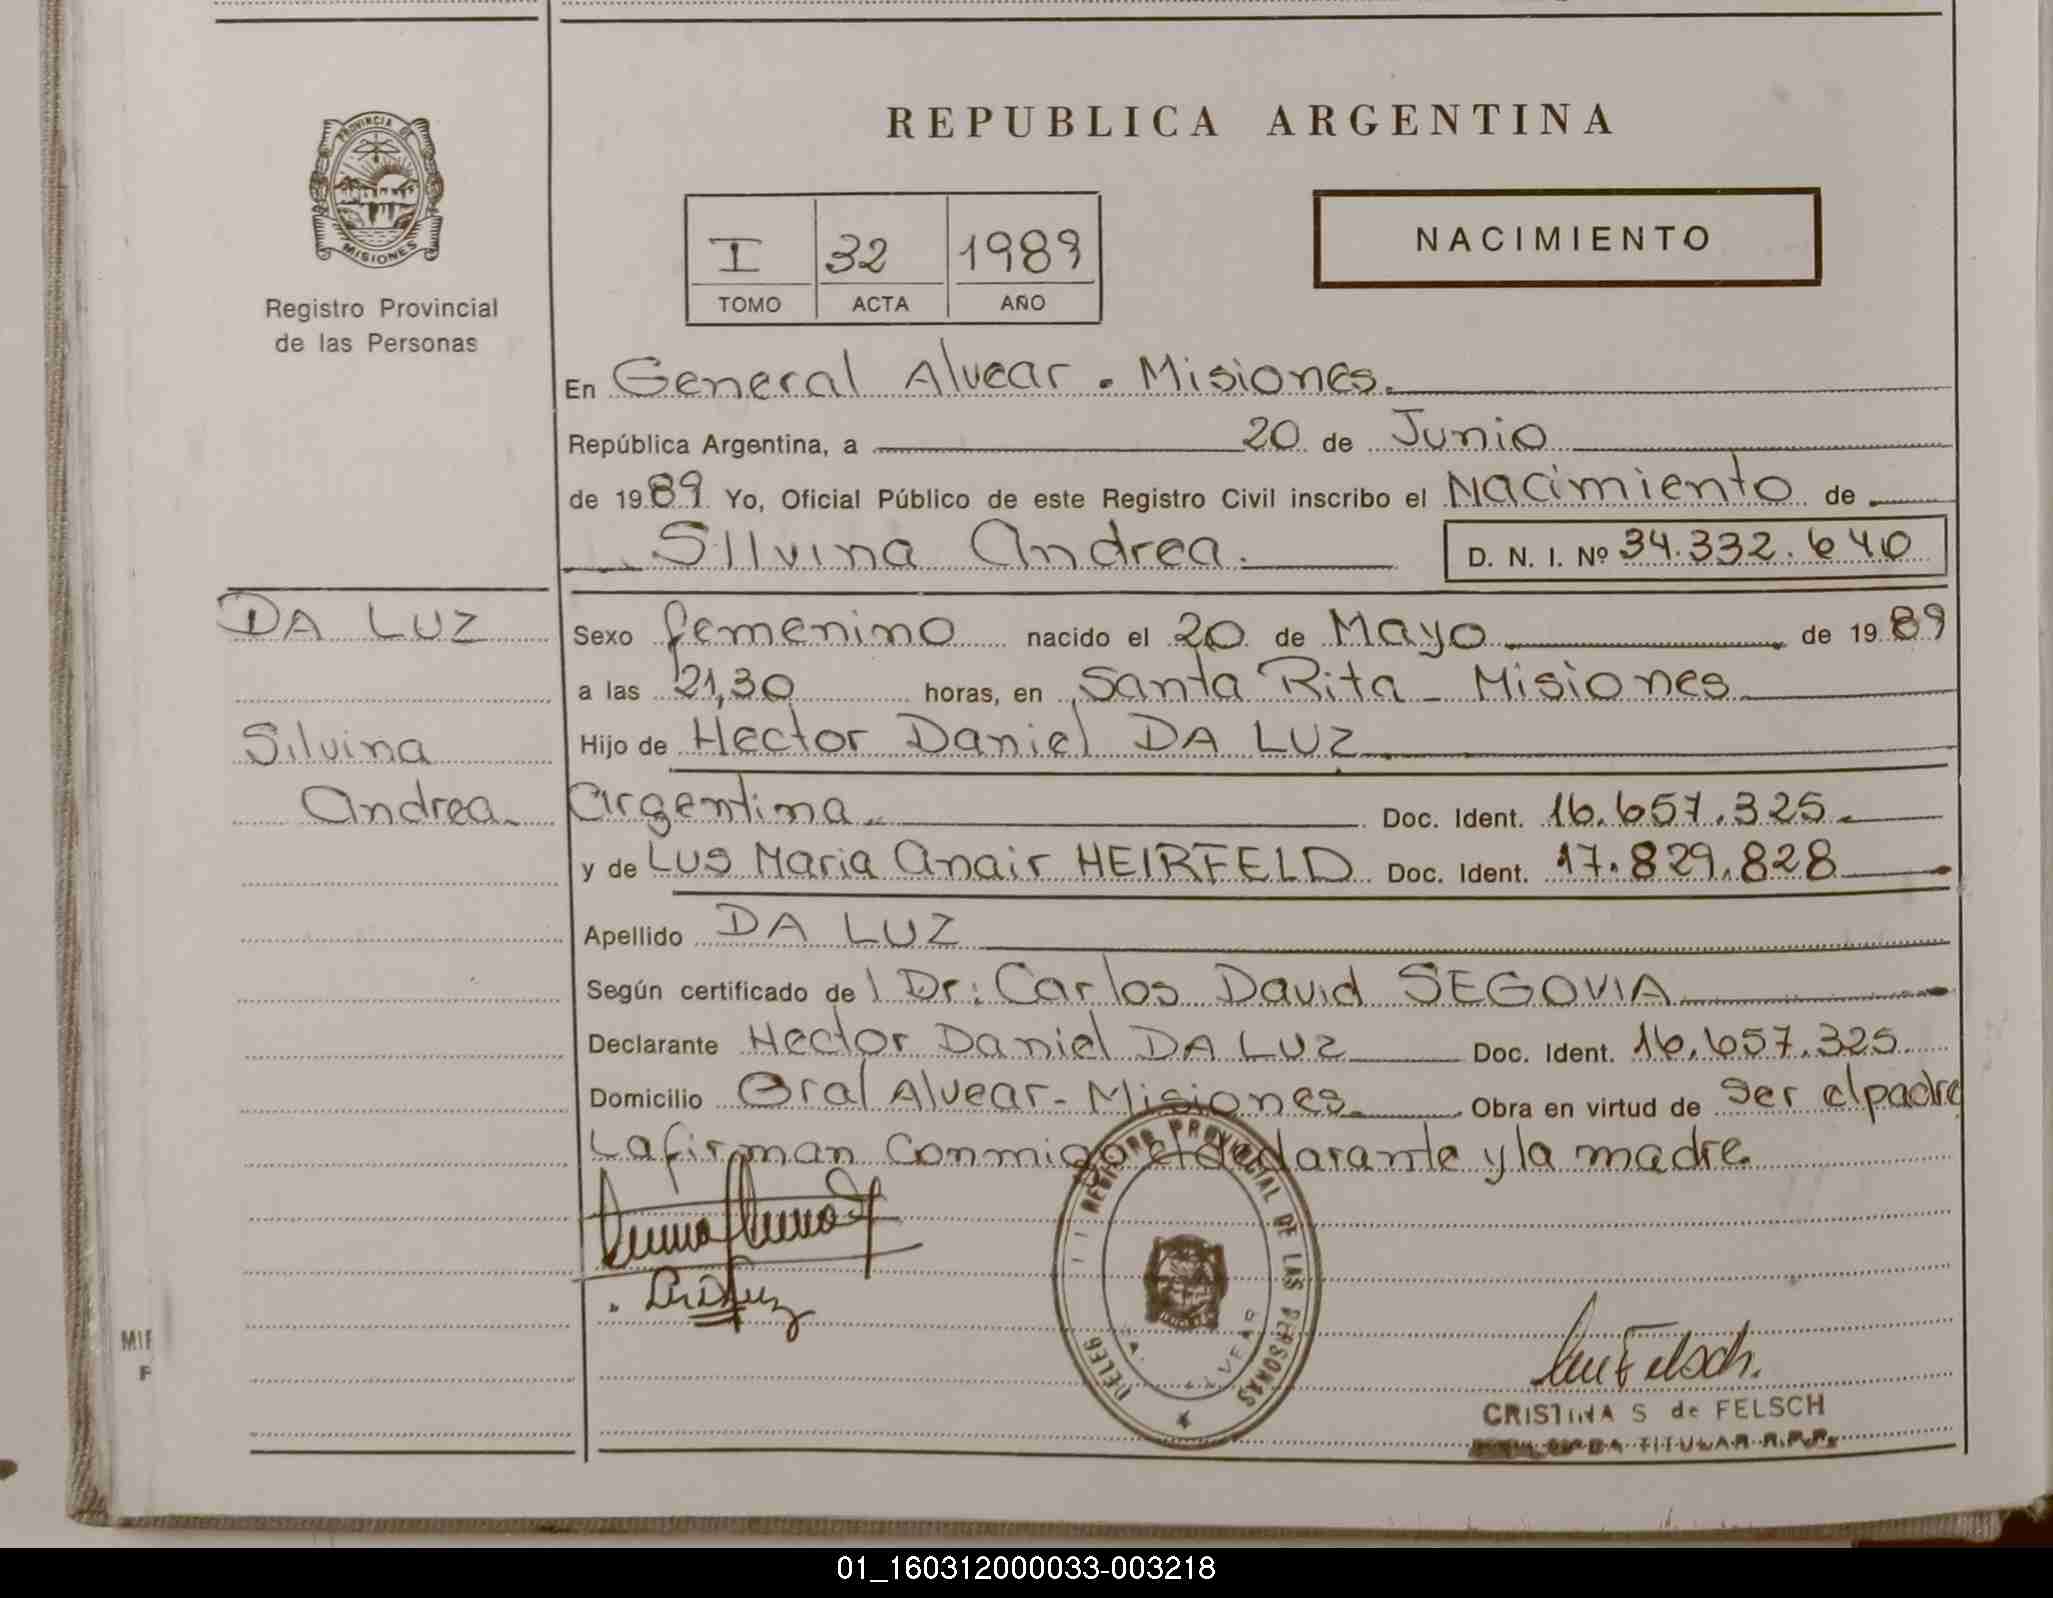 REPUBLICA ARGENTINA
PROVINCIA DE
MISIONES
Registro Provincial
de las Personas
I 32 1989
TOMO ACTA AÑO
NACIMIENTO
En General Alvear. Misiones.
República Argentina, a 20 de Junio
de 1989 Yo, Oficial Público de este Registro Civil inscribo el Nacimiento de
Silvina Andrea. D. N. I. Nº 34.332.640
DA LUZ
Silvina
Andrea.
Sexo femenino nacido el 20 de Mayo de 1989
a las 21,30 horas, en Santa Rita - Misiones
Hijo de Hector Daniel DA LUZ
Argentina Doc. Ident. 16.657.325.
y de Lus Maria Anair HEIRFELD Doc. Ident. 17.829.828
Apellido DA LUZ
Según certificado del Dr: Carlos David SEGOVIA
Declarante Hector Daniel DA LUZ Doc. Ident. 16.657.325.
Domicilio Gral Alvear - Misiones. Obra en virtud de ser el padre
La firman conmigo el declarante y la madre.
REGISTRO PROVINCIAL DE LAS PERSONAS
DELEG
CRISTINA S de FELSCH
TITULAR R.P.P.
MIF
F
01_160312000033-003218